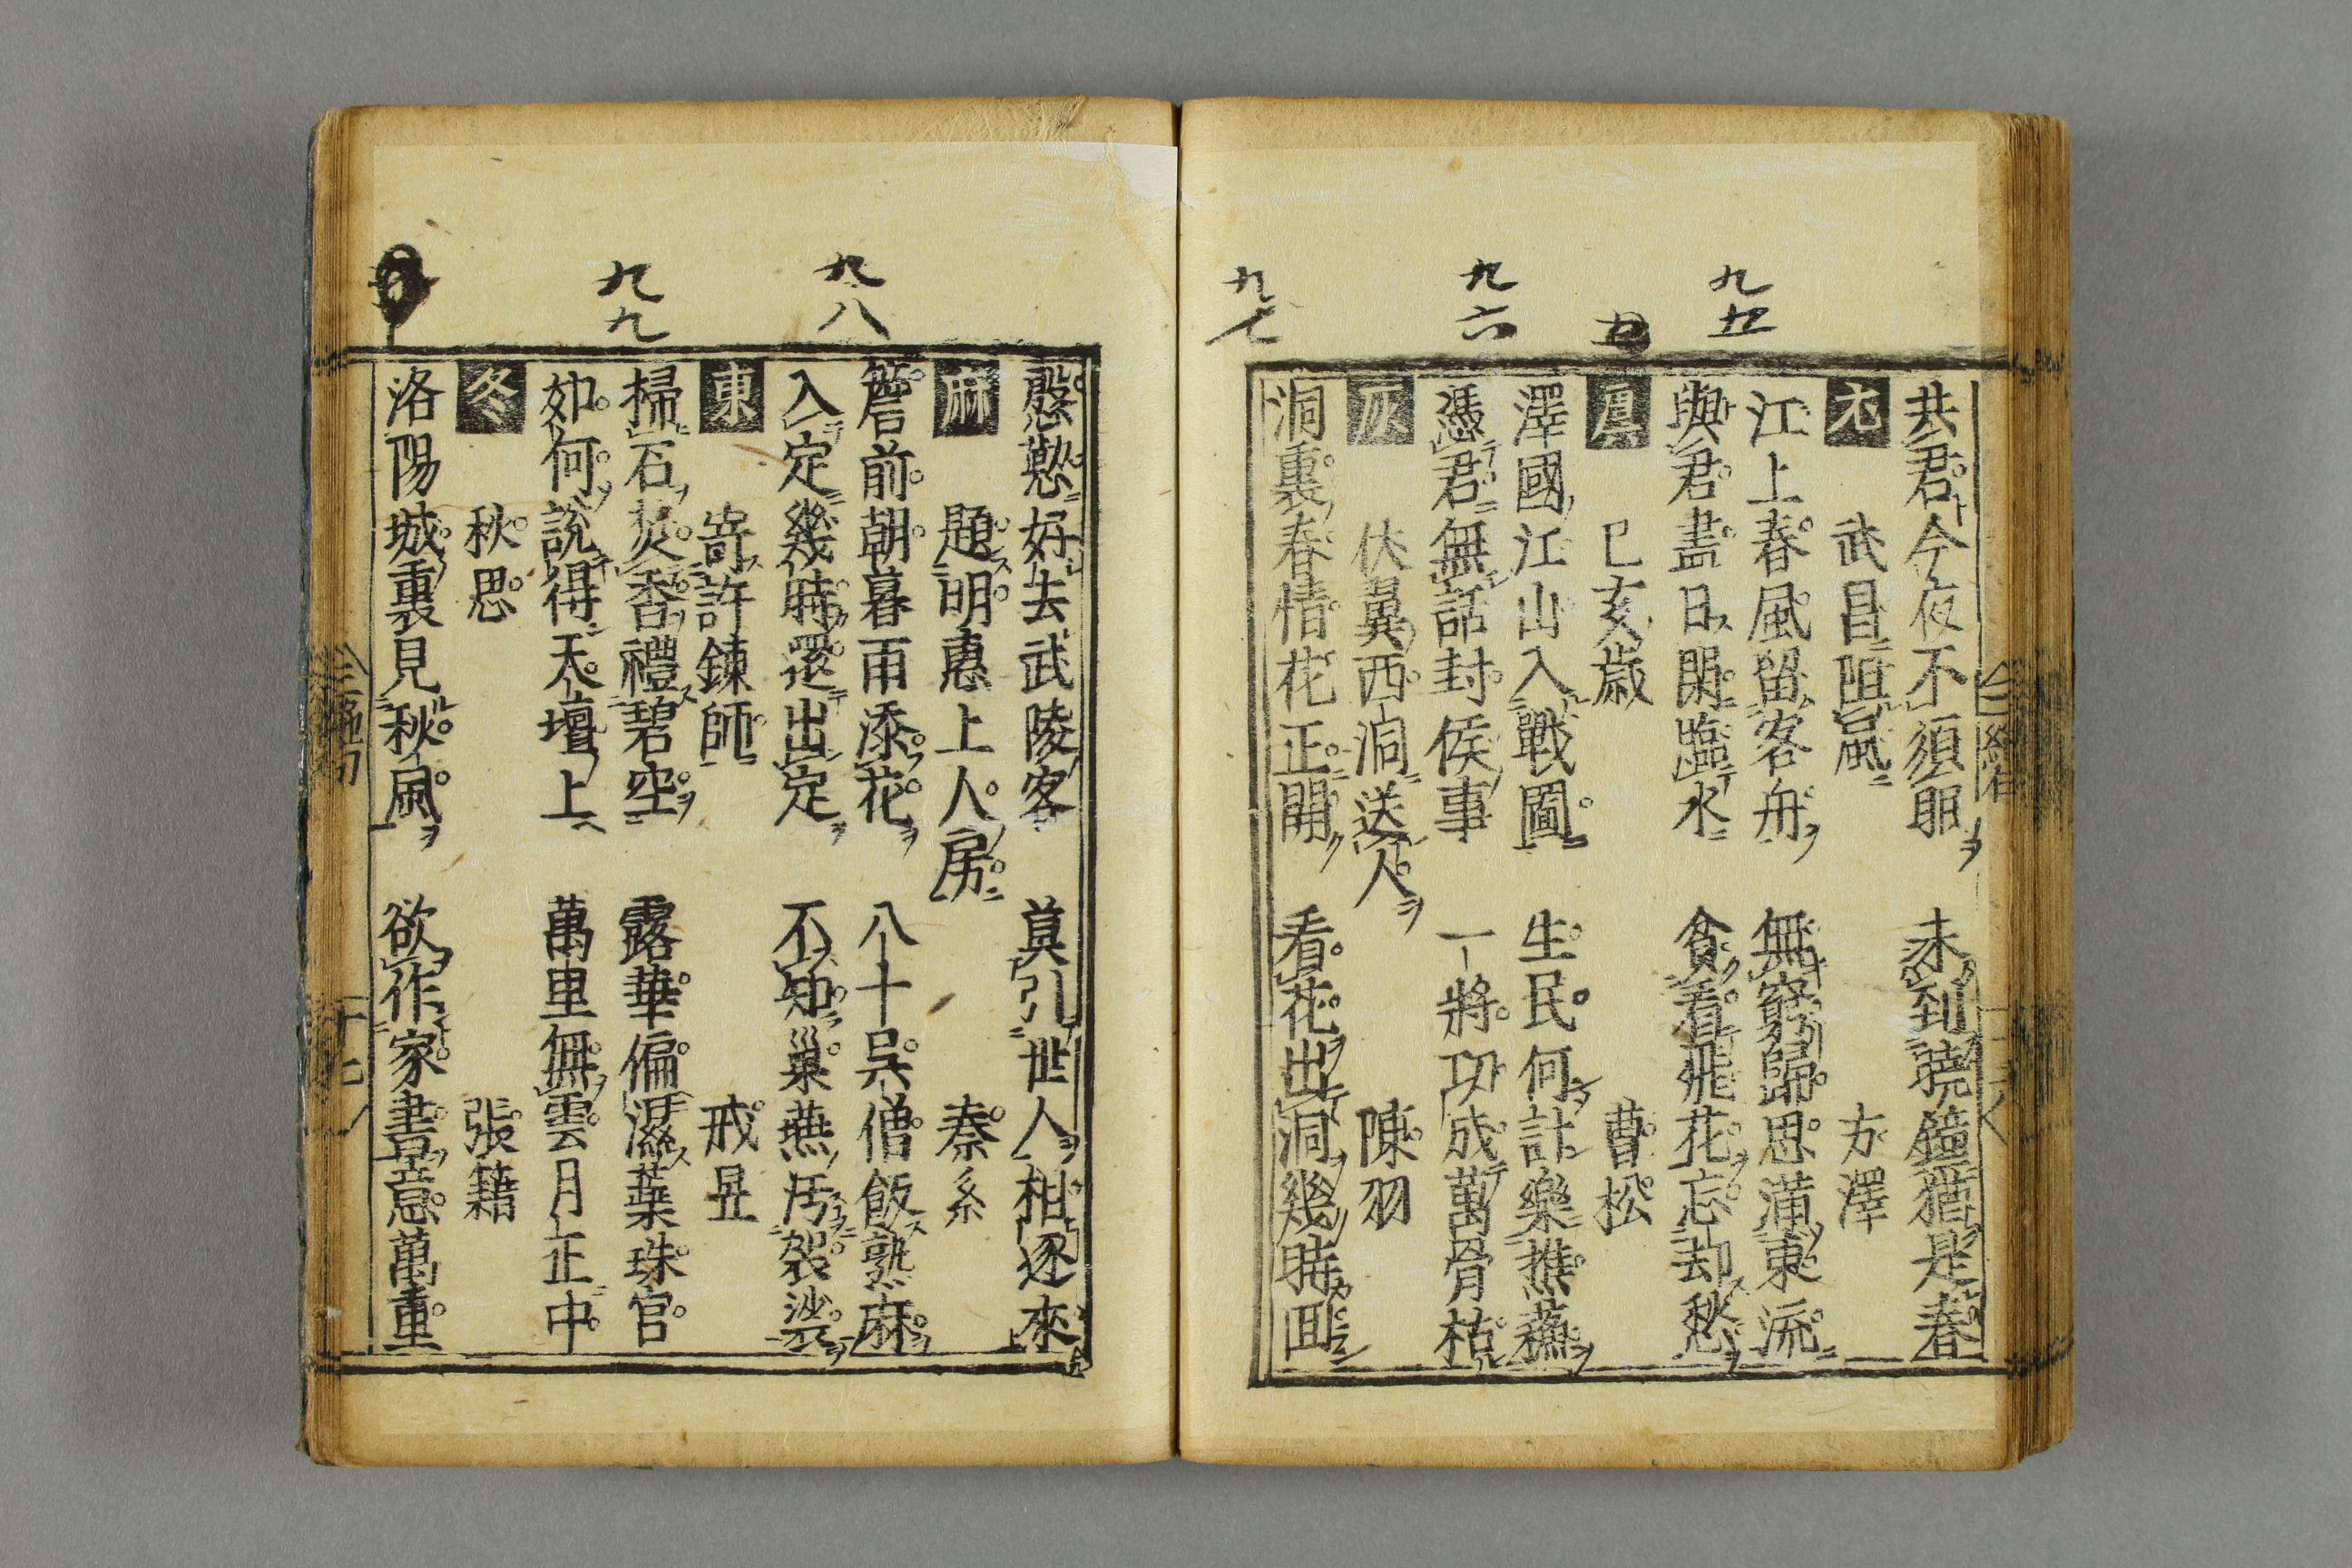 九五
九六
九七
共君今夜不須眠 未到曉鐘猶是春
尤 武昌阻風 方澤
江上春風留客舟 無窮歸思滿東流
與君盡日閑臨水 貪看飛花忘却愁
虞 己亥歲 曹松
澤國江山入戰圖 生民何計樂樵蘇
憑君無話封侯事 一將功成萬骨枯
灰 伏翼西洞送人 陳羽
洞裏春情花正開 看花出洞幾時回
九八
九九
慇懃好去武陵客 莫引世人相逐來
麻 題明惠上人房 秦系
簷前朝暮雨添花 八十吳僧飯熟麻
入定幾時還出定 不知巢燕汚袈裟
東 寄許鍊師 戎昱
掃石焚香禮碧空 露華偏濕蘂珠宮
如何說得天壇上 萬里無雲月正中
冬 秋思 張籍
洛陽城裏見秋風 欲作家書意萬重